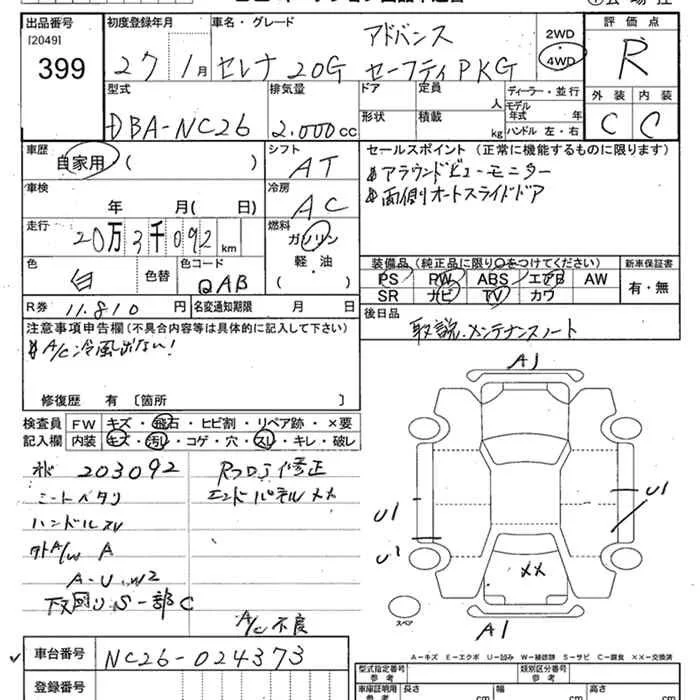 出品番号
[2049]
399
初度登録年月
27 1月
車名・グレード
アドバンス
セレナ 20G セーフティPKG
2WD
4WD
評価点
R
外装 内装
C C
型式
DBA-NC26
排気量
2.000cc
ドア
定員
人
形状
積載
kg
ディーラー・並行
モデル年式 年
ハンドル 左・右
車歴
自家用 ( )
シフト
AT
セールスポイント (正常に機能するものに限ります)
アラウンドビューモニター
両側オートスライドドア
車検
年 月(日)
冷房
AC
走行
20万3千092km
燃料
ガソリン
軽・油
( )
色
白
色替
色コード
QAB
装備品(純正品に限り○をつけてください)
PS PW ABS エアB AW
SR ナビ TV カワ
新車保証書
有・無
R券 11.810円
名変通知期限 月 日
後日品
取説.メンテナンスノート
注意事項申告欄(不具合内容等は具体的に記入して下さい)
A/C冷風出ない!
修復歴 有 [箇所 ]
検査員記入欄
FW キズ・飛石・ヒビ割・リペア跡・×要
内装 キズ・汚れ・コゲ・穴・スレ・キレ・破レ
203092
シートヘタリ
ハンドルスレ
外A/W A
A-U.W2
下回りS一部C
修正
エンドパネルXX
A/C不良
A1
U1
U1
U1
XX
A1
スペア
車台番号
NC26-024373
登録番号
A-キズ E-エクボ U-凹み W-補修跡 S-サビ C-腐食 XX-交換済
型式指定番号
参考
類別区分番号
参考
車庫証明用
参考
長さ cm
幅 cm
高さ cm